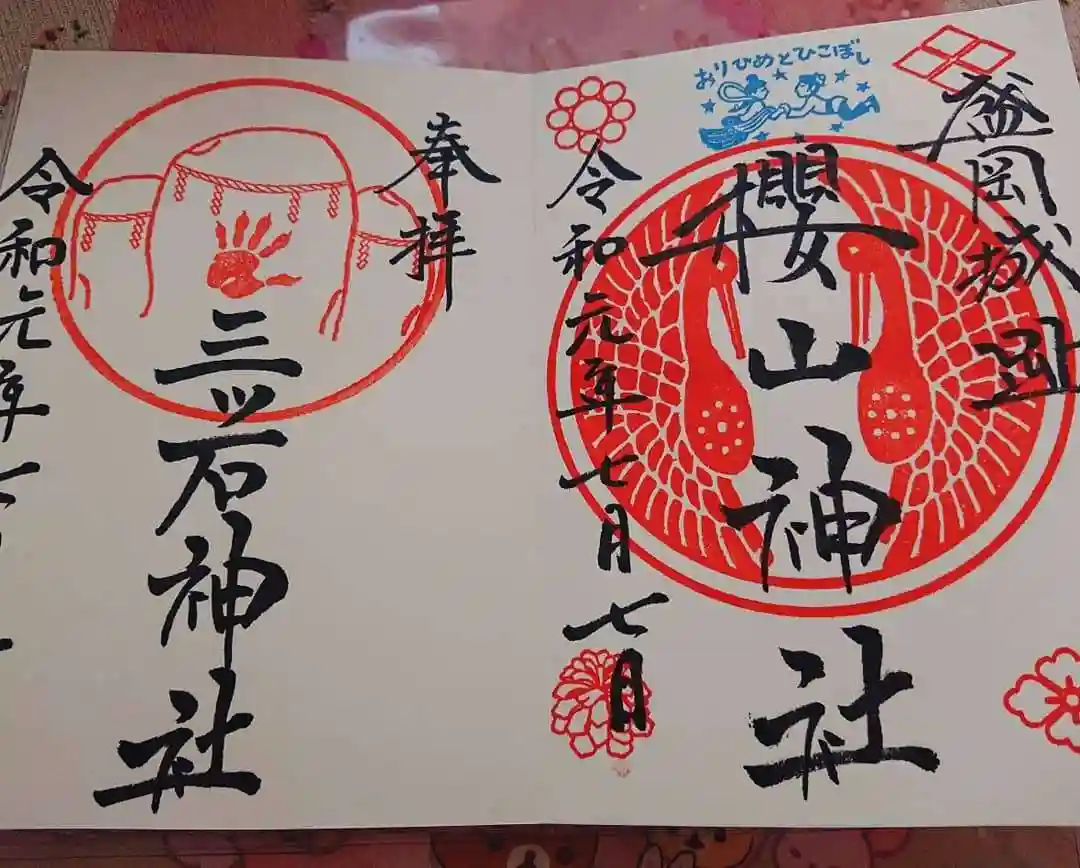 盛岡城
おりひめとひこぼし
櫻山神社
令和元年七月七月
奉拝
三ッ石神社
令和元年